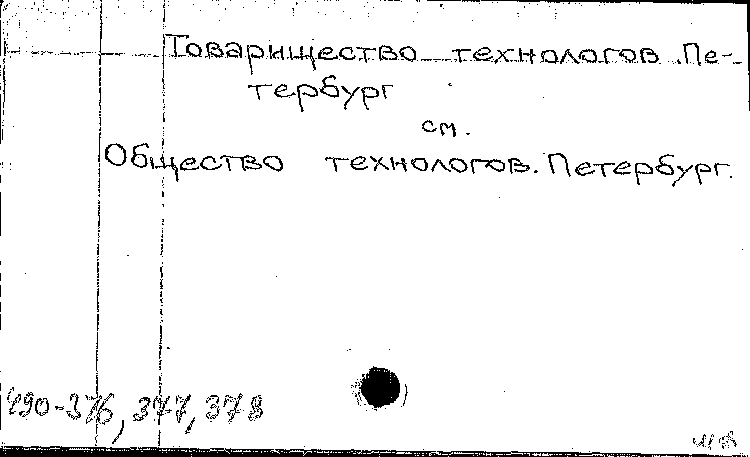 Товарищество технологов. Пе-
тербург
см.
Общество технологов. Петербург.
490-376, 377, 378